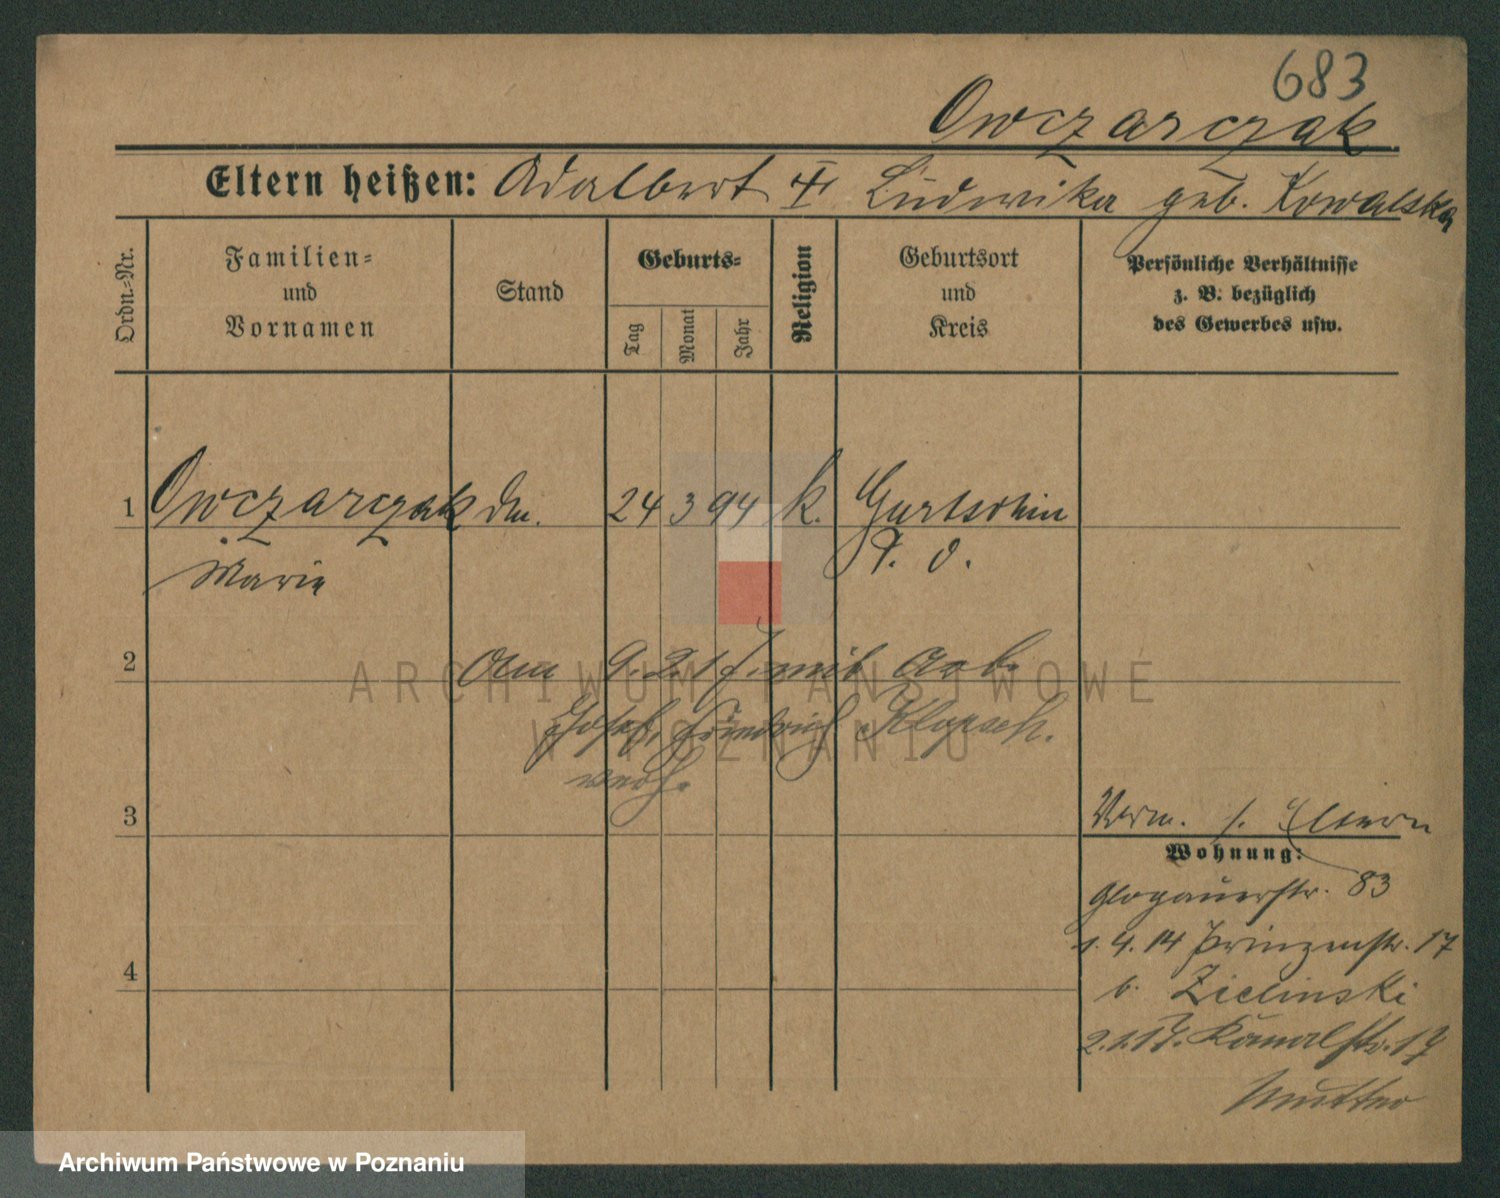 683
Owczarczak
Eltern heißen: Adalbert Ludwika geb. Kowalska
Ordn.-Nr.
Familien-
und
Vornamen
Stand
Geburts-
Tag
Monat
Jahr
Religion
Geburtsort
und
Kreis
Persönliche Verhältnisse
z. B. bezüglich
des Gewerbes usw.
1 Owczarczak 24 3 94 k. Gurtschin
Marie P. O.
2 Am 9.2.17 mit Arb.
Josef, Friedrich Klopsch.
verh.
3
Verm. s. Eltern
Wohnung:
Glogauerstr. 83
1.4.14 Prinzenstr. 17
b. Zielinski
4
2.1.17. Kanalstr. 17
Mutter
ARCHIWUM PAŃSTWOWE
W POZNANIU
Archiwum Państwowe w Poznaniu